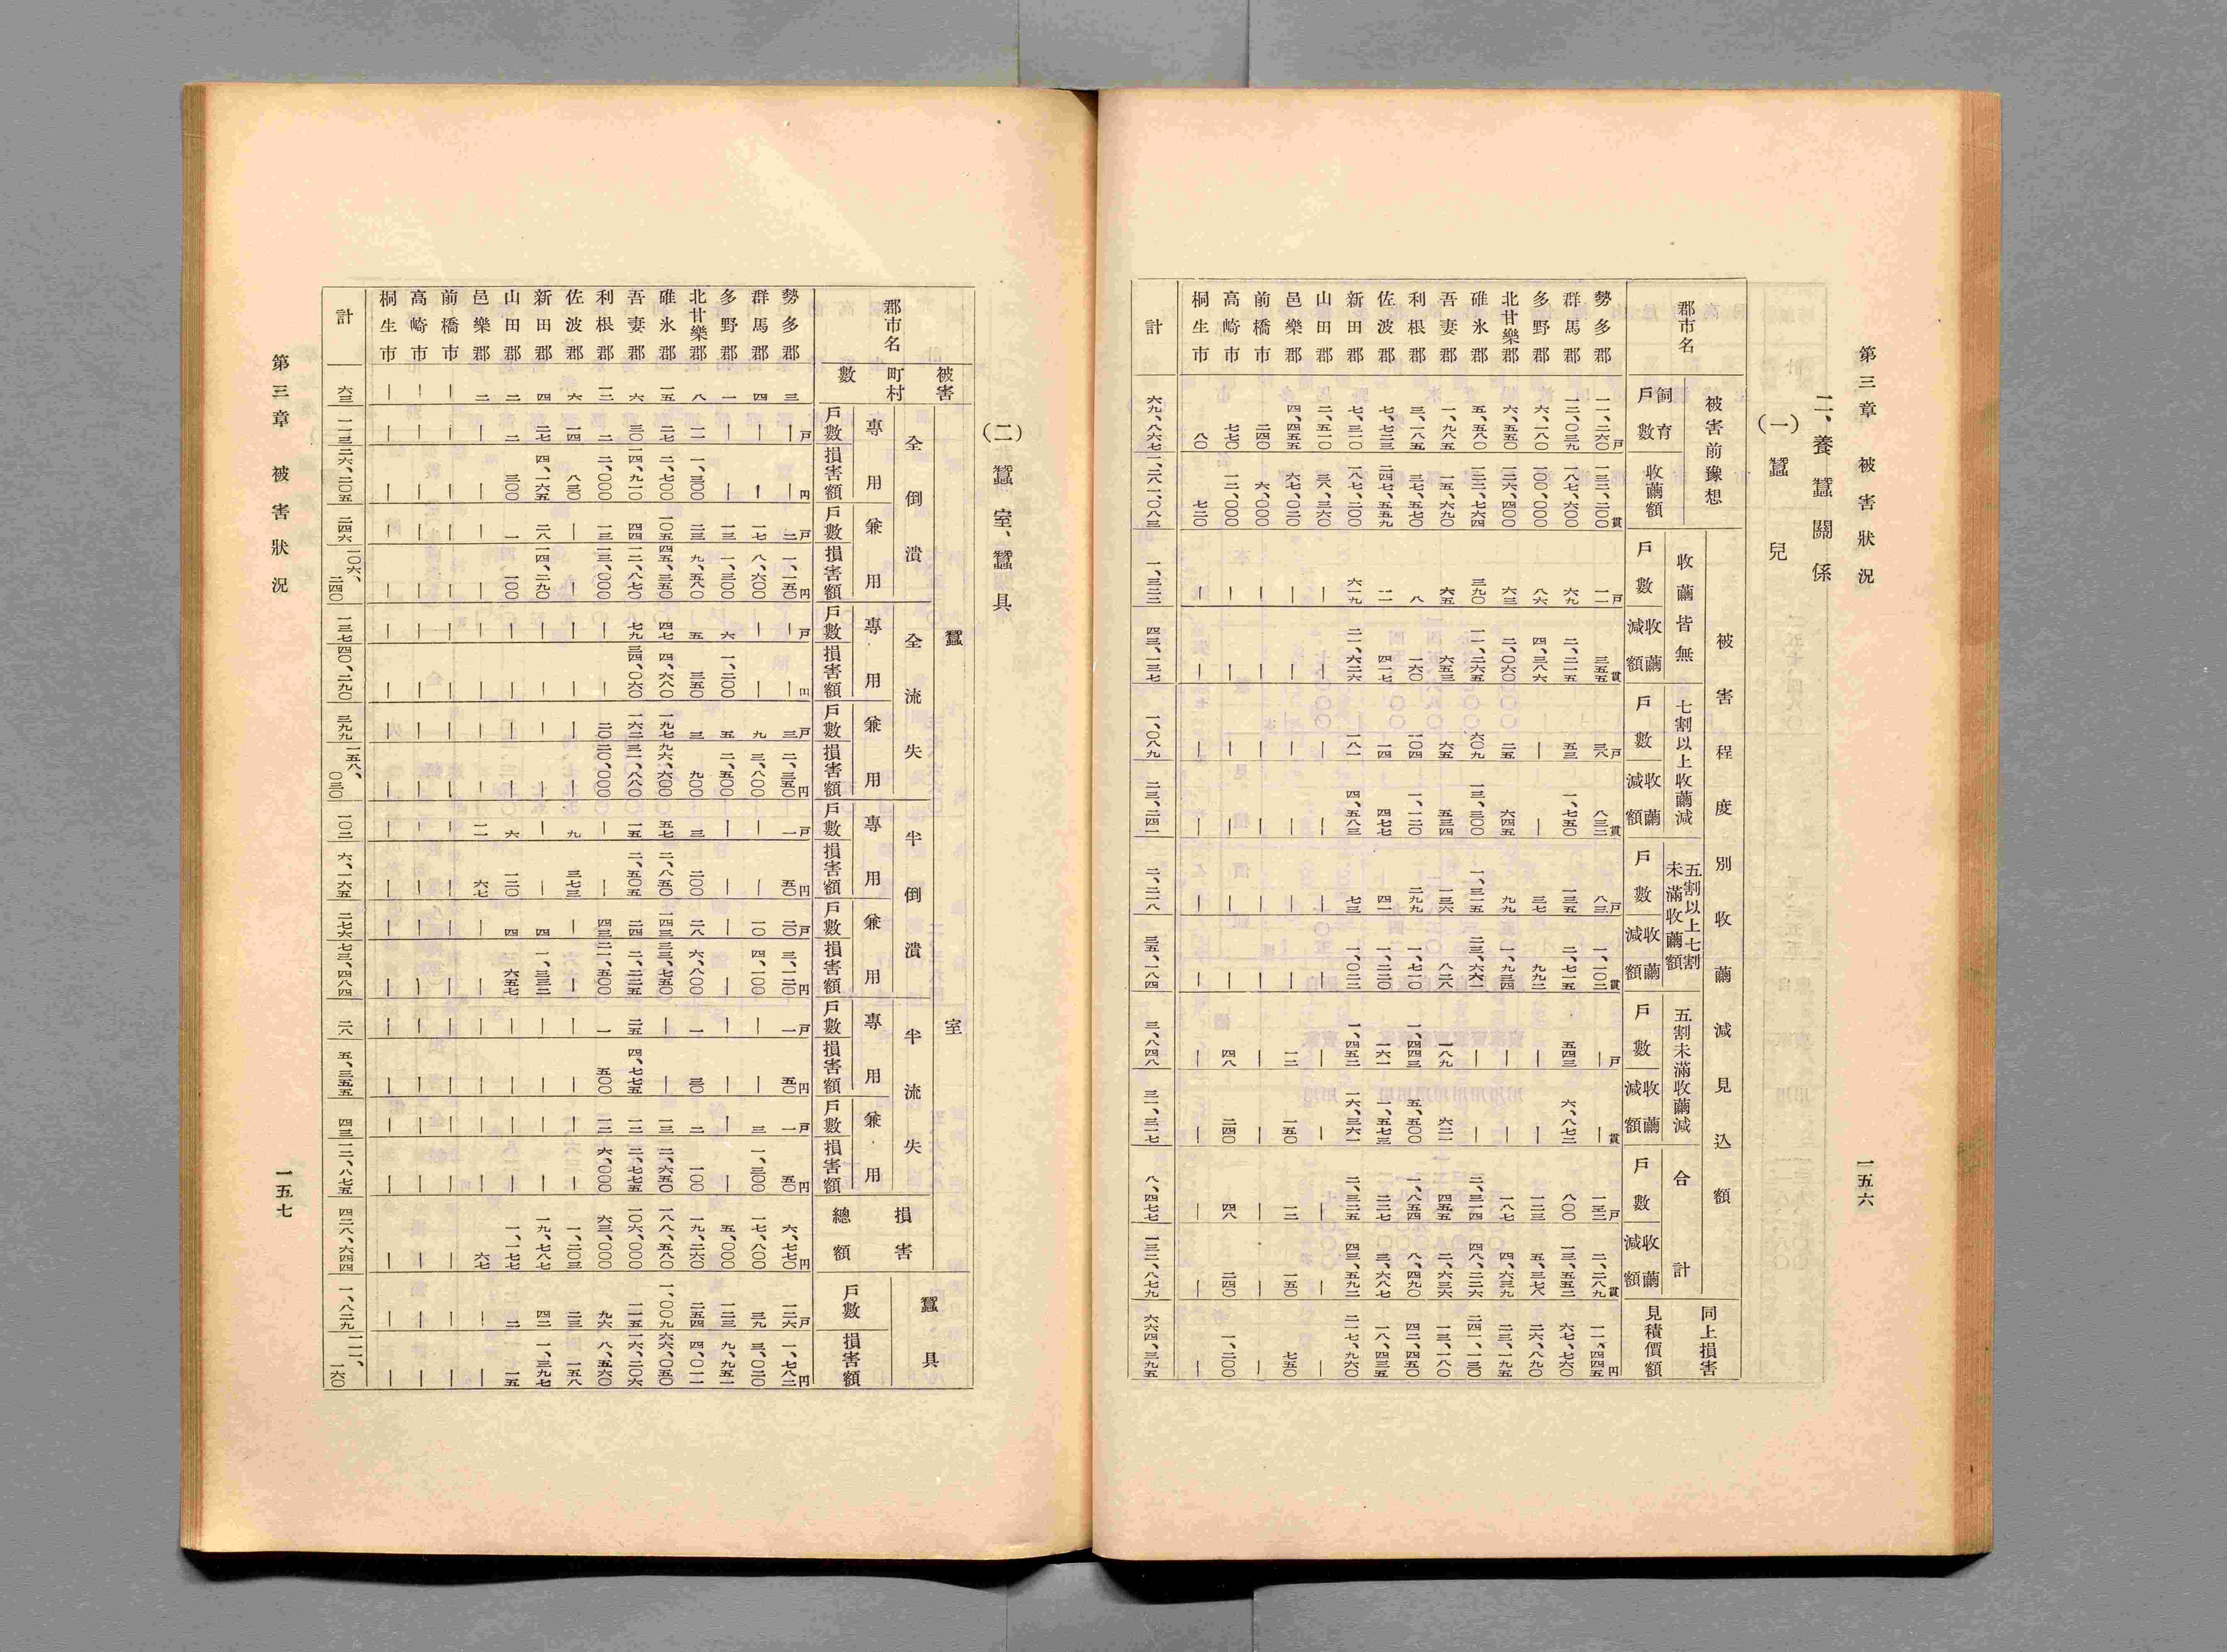 第三章 被害狀況 一五六
二、養蠶關係
(一) 蠶兒
郡市名 被害前豫想 飼育戶數 收繭額
被害程度別收繭減見込額
收繭皆無 戶數 收繭減額
七割以上收繭減 戶數 收繭減額
五割以上七割未滿收繭額 戶數 收繭減額
五割未滿收繭減 戶數 收繭減額
合計 戶數 收繭減額
同上損害見積價額
勢多郡 一一、二六〇戶 一三二、二〇〇貫 一一戶 三五五貫 三八戶 八三二貫 八三戶 一、一〇二貫 ―戶 ―貫 一三二戶 二、二八九貫 一一、四四五円
群馬郡 一二、〇三九 一八七、六〇〇 六九 二、二一五 五三 一、七五〇 一三五 二、七一五 五四三 六、八七二 八〇〇 一三、五五二 六七、七六〇
多野郡 六、一八〇 一〇〇、〇〇〇 八六 四、三八六 ― ― 三七 九九二 ― ― 一二三 五、三七八 二六、八九〇
北甘樂郡 六、五五〇 一二六、四〇〇 六三 二、〇六〇 二五 六四五 九九 一、九三四 ― ― 一八七 四、六三九 二三、一九五
碓氷郡 五、五八〇 一三二、七六四 三九〇 一一、二六五 六〇九 一三、三〇〇 一、三一五 二三、六六一 ― ― 二、三一四 四八、二二六 二四一、一三〇
吾妻郡 一、九八五 一五、六九〇 六五 六五三 六五 五三四 一三六 八二八 一八九 六二一 四五五 二、六三六 一三、一八〇
利根郡 三、一八五 三七、五七〇 八 一六〇 一〇四 一、一二〇 二九九 一、七一〇 一、四四三 五、五〇〇 一、八五四 八、四九〇 四二、四五〇
佐波郡 七、七二三 二四七、五五九 一一 四一七 一四 四七七 四一 一、二二〇 一六一 一、五七三 二二七 三、六八七 一八、四三五
新田郡 七、三一〇 一八七、二〇〇 六一九 二一、六二六 一八一 四、五八三 七三 一、〇二二 一、四五二 一六、三六一 二、三二五 四三、五九二 二一七、九六〇
山田郡 二、五一〇 三八、三六〇 ― ― ― ― ― ― ― ― ― ― ―
邑樂郡 四、四五五 六七、〇二〇 ― ― ― ― ― ― 一二 一五〇 一二 一五〇 七五〇
前橋市 二四〇 六、〇〇〇 ― ― ― ― ― ― ― ― ― ― ―
高崎市 七七〇 一二、〇〇〇 ― ― ― ― ― ― 四八 二四〇 四八 二四〇 一、二〇〇
桐生市 八〇 七二〇 ― ― ― ― ― ― ― ― ― ― ―
計 六九、八六七 一、二八一、〇八三 一、三二二 四三、一三七 一、〇八九 二三、二四一 二、二一八 三五、一八四 三、八四八 三一、三一七 八、四七七 一三二、八七九 六六四、三九五
(二) 蠶室、蠶具
郡市名 被害町村數
蠶室
全倒潰 專用 戶數 損害額 兼用 戶數 損害額
全流失 專用 戶數 損害額 兼用 戶數 損害額
半倒潰 專用 戶數 損害額 兼用 戶數 損害額
半流失 專用 戶數 損害額 兼用 戶數 損害額
損害總額
蠶具 戶數 損害額
勢多郡 三 ―戶 ―円 二戶 一、一五〇円 ―戶 ―円 三戶 二、三五〇円 一戶 五〇円 二〇戶 三、一二〇円 一戶 五〇円 一戶 五〇円 六、七七〇円 一二六戶 一、七八二円
群馬郡 四 ― ― 一七 八、六〇〇 ― ― 九 三、八〇〇 ― ― 一〇 四、一〇〇 ― ― 三 一、三〇〇 一七、八〇〇 三九 三、〇二〇
多野郡 一 ― ― 一三 一、三〇〇 六 一、二〇〇 五 二、五〇〇 ― ― ― ― ― ― ― ― 五、〇〇〇 一二三 九、九五一
北甘樂郡 八 一一 一、三〇〇 二三 九、五八〇 五 三五〇 三 九〇〇 三 二〇〇 二八 六、八〇〇 一 三〇 二 一〇〇 一九、二六〇 二五四 四、〇一一
碓氷郡 一五 二七 二、七〇〇 一〇五 四五、三五〇 四七 四、六八〇 一九七 九六、六〇〇 五七 二、八五〇 一四三 三三、七五〇 ― ― 一三 二、六五〇 一八八、五八〇 一、〇〇九 六六、〇五〇
吾妻郡 六 三〇 一四、九一〇 四四 一二、八七〇 七九 三四、〇六〇 一六二 三一、八八〇 一五 二、五〇五 二四 二、二二五 二五 四、七七五 一二 二、七七五 一〇六、〇〇〇 一一五 一六、二〇六
利根郡 一二 二 二、〇〇〇 一三 一三、〇〇〇 ― ― 二〇 二〇、〇〇〇 ― ― 四三 二一、五〇〇 一 五〇〇 一二 六、〇〇〇 六三、〇〇〇 九六 八、五六〇
佐波郡 六 一四 八三〇 ― ― ― ― ― ― 九 三七三 ― ― ― ― ― ― 一、二〇三 二三 一五八
新田郡 四 二七 四、一六五 二八 一四、二九〇 ― ― ― ― ― ― 四 一、三三二 ― ― ― ― 一九、七八七 四二 一、三九七
山田郡 二 二 三〇〇 一 一〇〇 ― ― ― ― 六 一二〇 四 六五七 ― ― ― ― 一、一七七 二 一五
邑樂郡 二 ― ― ― ― ― ― ― ― 一一 六七 ― ― ― ― ― ― 六七 ― ―
前橋市 ― ― ― ― ― ― ― ― ― ― ― ― ― ― ― ― ― ― ― ―
高崎市 ― ― ― ― ― ― ― ― ― ― ― ― ― ― ― ― ― ― ― ―
桐生市 ― ― ― ― ― ― ― ― ― ― ― ― ― ― ― ― ― ― ― ―
計 六三 一一三 二六、二〇五 二四六 一〇六、二四〇 一三七 四〇、二九〇 三九九 一五八、〇三〇 一〇二 六、一六五 二七六 七三、四八四 二八 五、三五五 四三 一二、八七五 四二八、六四四 一、八二九 一一一、一六〇
第三章 被害狀況 一五七